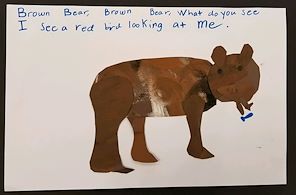 Brown Bear, Brown Bear, What do you see
I see a red bird looking at me.